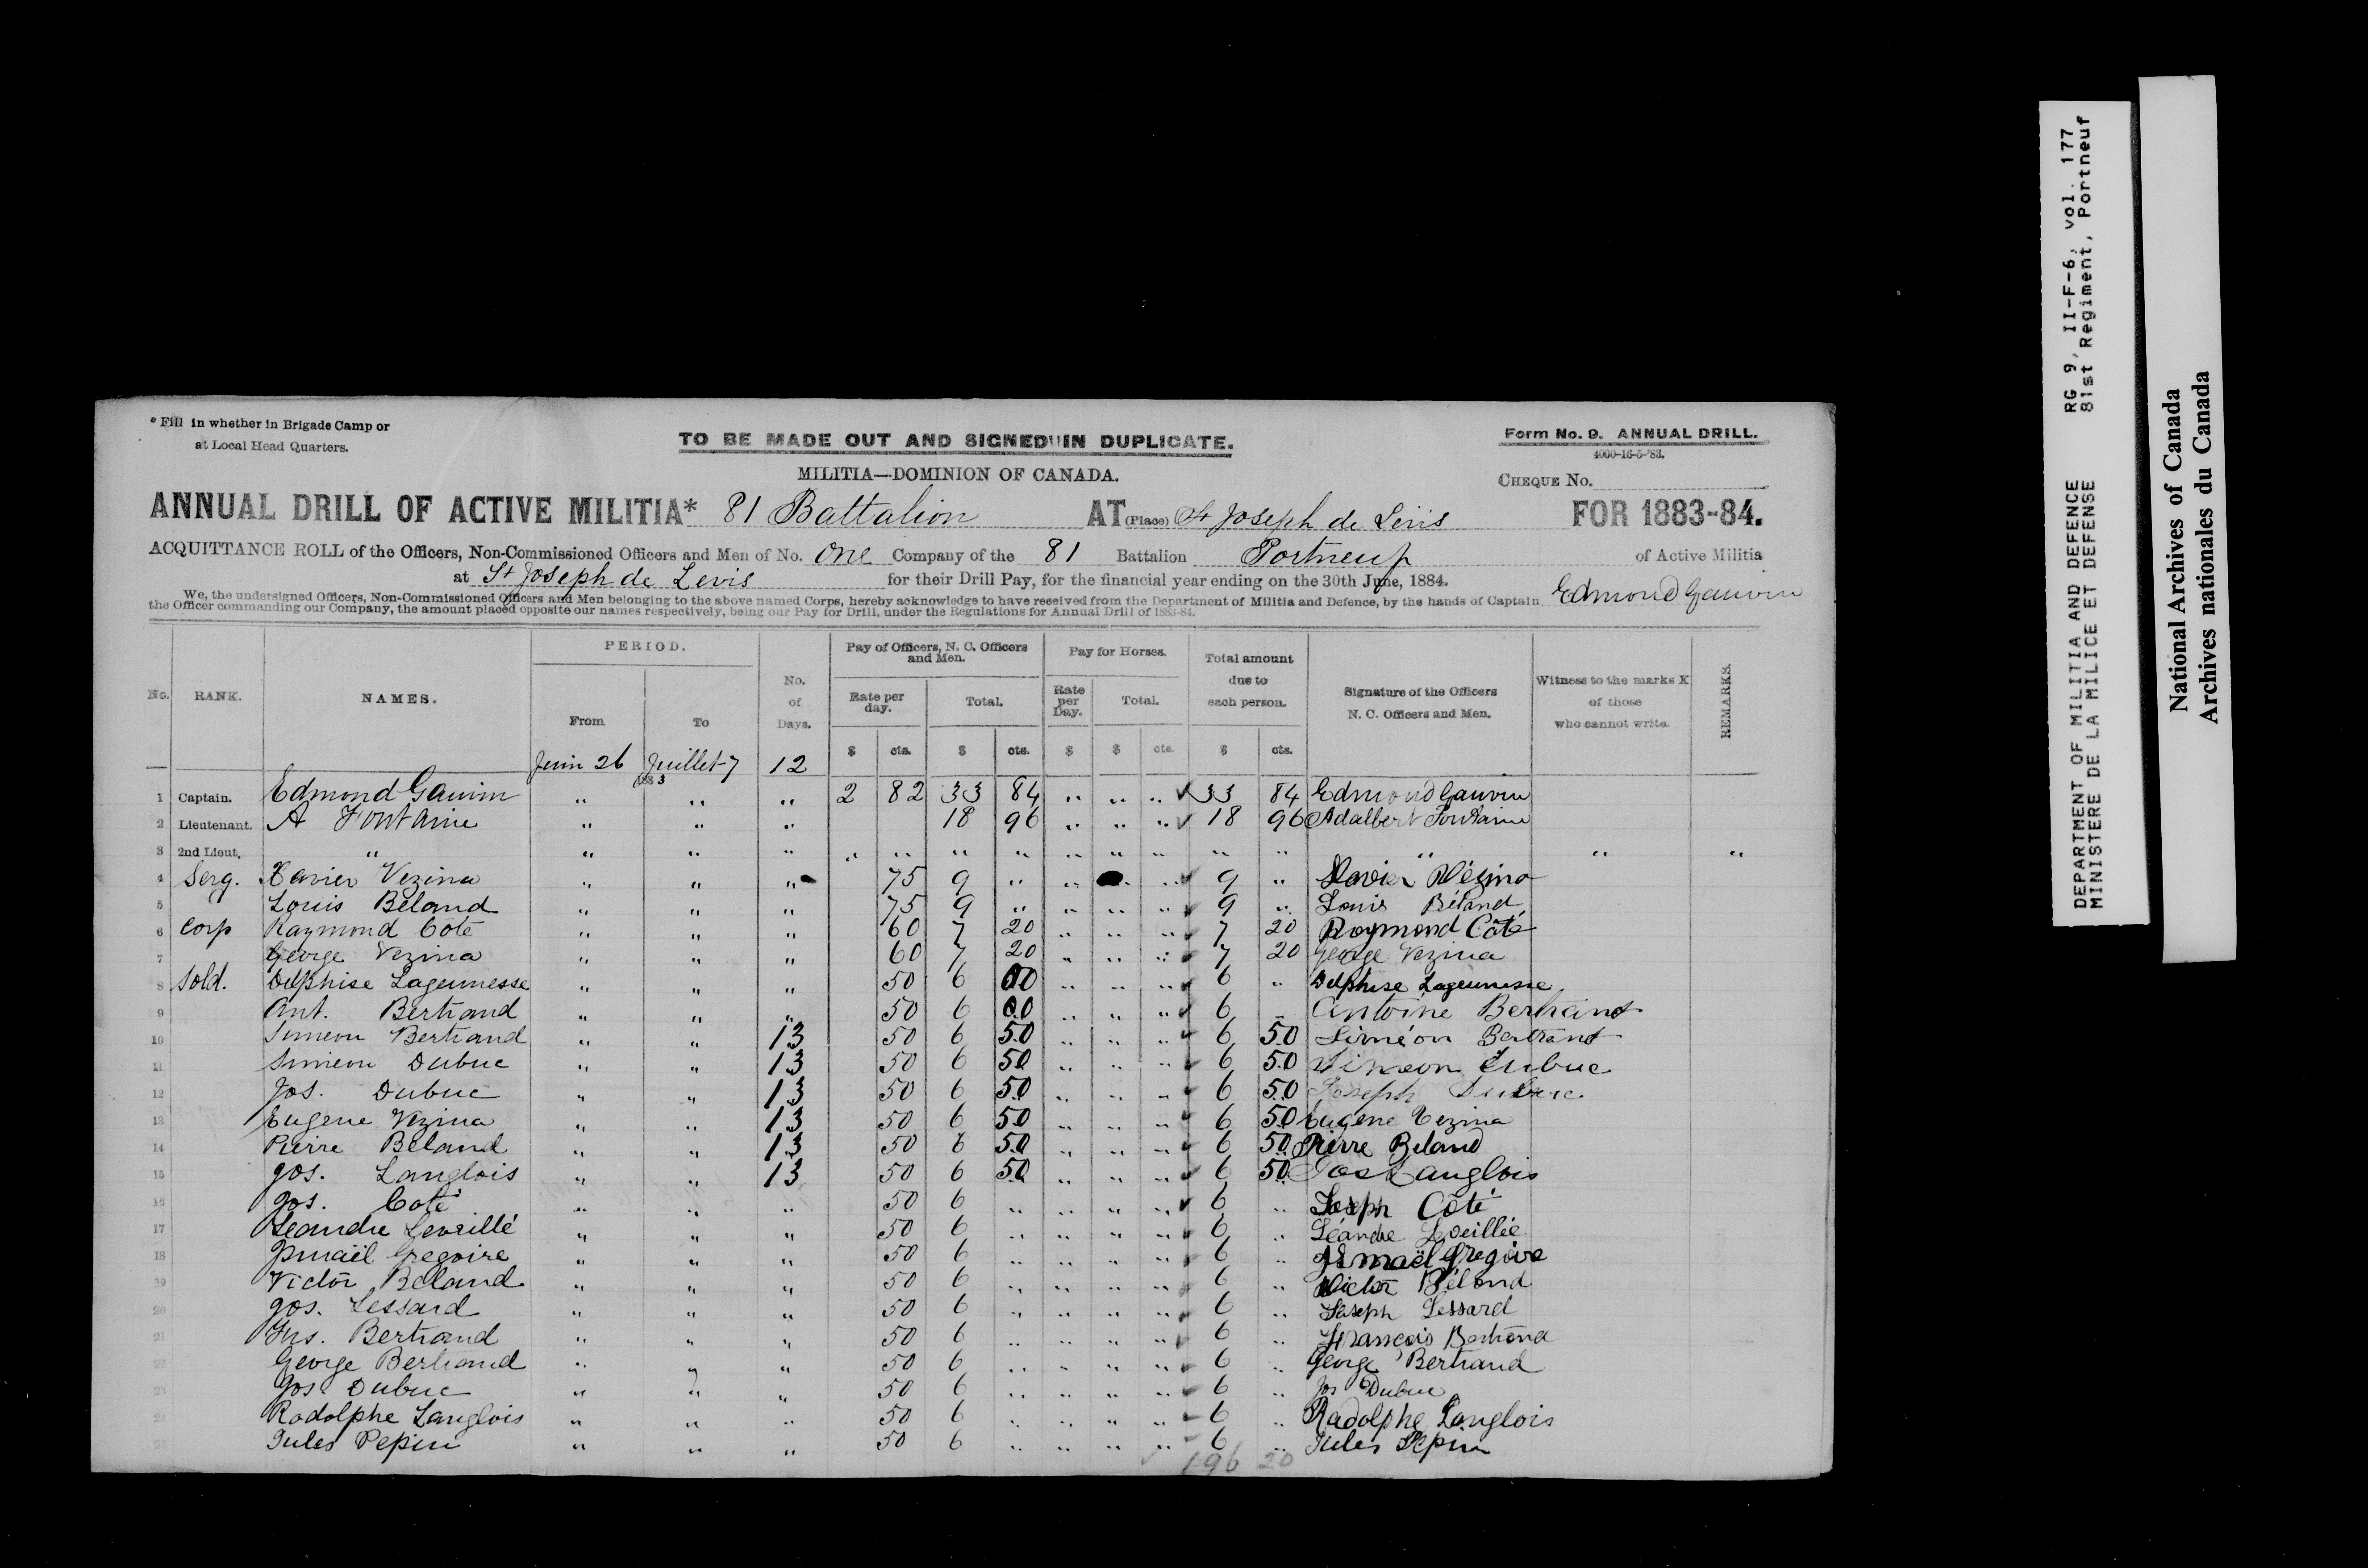 * Fill in whether in Brigade Camp or
at Local Head Quarters.
TO BE MADE OUT AND SIGNED IN DUPLICATE.
Form No. 9. ANNUAL DRILL.
4000-16-5-'83.
MILITIA—DOMINION OF CANADA.
CHEQUE No.
ANNUAL DRILL OF ACTIVE MILITIA* 81 Battalion AT (Place) St Joseph de Levis FOR 1883-84.
ACQUITTANCE ROLL of the Officers, Non-Commissioned Officers and Men of No. One Company of the 81 Battalion Portneuf of Active Militia
at St Joseph de Levis for their Drill Pay, for the financial year ending on the 30th June, 1884.
We, the undersigned Officers, Non-Commissioned Officers and Men belonging to the above named Corps, hereby acknowledge to have received from the Department of Militia and Defence, by the hands of Captain Edmond Gauvin
the Officer commanding our Company, the amount placed opposite our names respectively, being our Pay for Drill, under the Regulations for Annual Drill of 1883-84.
No. RANK. NAMES. PERIOD. From To No. of Days. Pay of Officers, N. C. Officers and Men. Rate per day. Total. Pay for Horses. Rate per Day. Total. Total amount due to each person. Signature of the Officers N. C. Officers and Men. Witness to the marks X of those who cannot write. REMARKS.
$ cts. $ cts. $ $ cts. $ cts.
Juin 26 Juillet 7 12
1883
1 Captain. Edmond Gauvin " " " 2 82 33 84 " " " 33 84 Edmond Gauvin
2 Lieutenant. A Fontaine " " " 18 96 " " " 18 96 Adalbert Fontaine
3 2nd Lieut. " " " " " " " " " " " " " " " "
4 Serg. Xavier Vezina " " " 75 9 " " " 9 " Xavier Vézina
5 Louis Beland " " " 75 9 " " " " 9 " Louis Béland
6 Corp Raymond Coté " " " 60 7 20 " " " 7 20 Raymond Côté
7 George Vezina " " " 60 7 20 " " " 7 20 George Vezina
8 Sold. Delphise Lageunesse " " " 50 6 00 " " " 6 " Delphise Lageunesse
9 Ant. Bertrand " " " 50 6 00 " " " 6 " Antoine Bertrand
10 Simeon Bertrand " " 13 50 6 50 " " " 6 50 Siméon Bertrand
11 Simeon Dubuc " " 13 50 6 50 " " " 6 50 Simeon Dubuc
12 Jos. Dubuc " " 13 50 6 50 " " " 6 50 Joseph Dubuc
13 Eugene Vezina " " 13 50 6 50 " " " 6 50 Eugene Vezina
14 Pierre Beland " " 13 50 6 50 " " " 6 50 Pierre Beland
15 Jos. Langlois " " 13 50 6 50 " " " 6 50 Jos Langlois
16 Jos. Coté " " " 50 6 " " " " 6 " Joseph Côté
17 Leandre Leveillé " " " 50 6 " " " " 6 " Léandre Leveillée
18 Ismaël Gregoire " " " 50 6 " " " " 6 " Ismaël Gregoire
19 Victor Beland " " " 50 6 " " " " 6 " Victor Béland
20 Jos. Lessard " " " 50 6 " " " " 6 " Joseph Lessard
21 Frs. Bertrand " " " 50 6 " " " " 6 " François Bertrand
22 George Bertrand " " " 50 6 " " " " 6 " George Bertrand
23 Jos Dubuc " " " 50 6 " " " " 6 " Jos Dubuc
24 Rodolphe Langlois " " " 50 6 " " " " 6 " Radolphe Langlois
25 Jules Pepin " " " 50 6 " " " " 6 " Jules Pepin
196 20
DEPARTMENT OF MILITIA AND DEFENCE RG 9, II-F-6, vol. 177
MINISTERE DE LA MILICE ET DEFENSE 81st Regiment, Portneuf
National Archives of Canada
Archives nationales du Canada